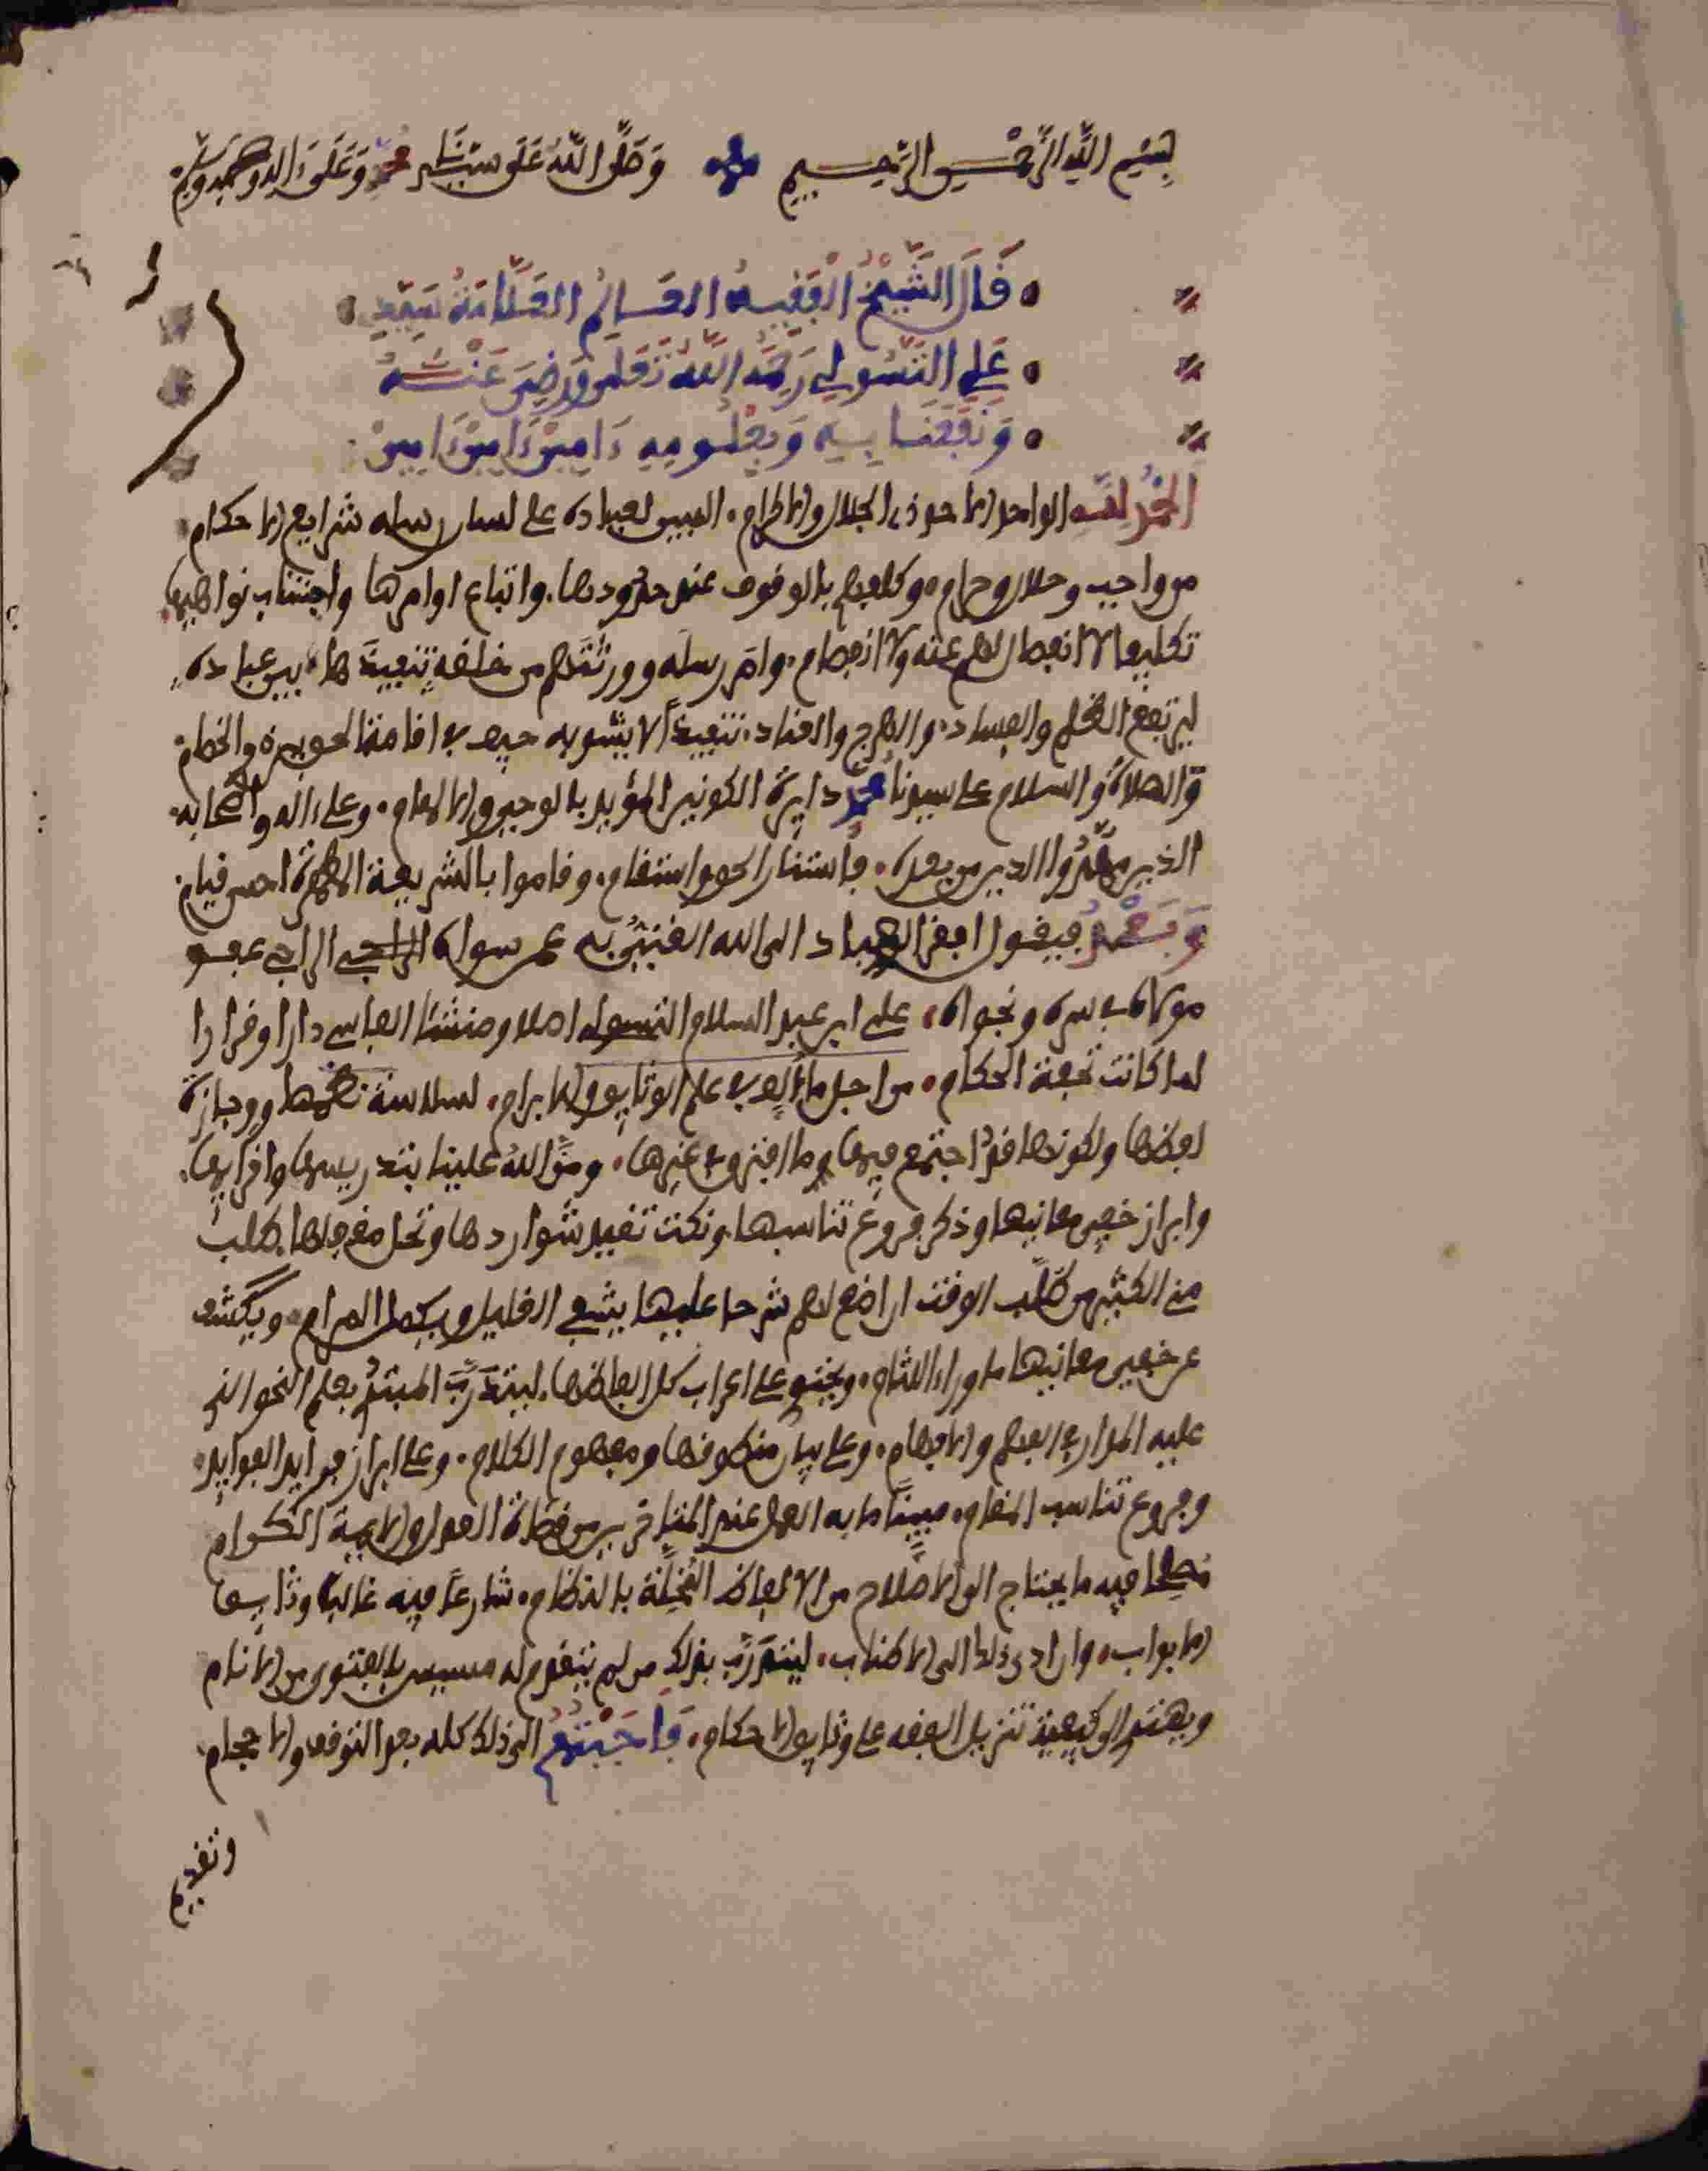 بسم الله الرحمن الرحيم وصلى الله على سيدنا محمد وعلى ءاله وصحبه وسلم
قال الشيخ الفقيه العالم العلامة سيدي
علي التسولي رحمه الله تعلى ورضي عنه
ونفعنا به وبعلومه ءامين ءامين ءامين
الحمد لله الواحد الاحد ذي الجلال والاكرام. المبين لعباده على لسان رسله شرايع الاحكام
من واجب وحلال وحرام. وكلفهم بالوقوف عند حدودها. واتباع اوامرها واجتناب نواهيها.
تكليفا لا انفصال لهم عنه ولا انفصام. وامر رسله وورثتهم من خلفه بتنفيذها. بين عباده
ليرتفع الظلم والفساد. والهرج والعناد. تنفيذا لا يشوبه حيف في اقامتها لحويزة والخصام
والصلاة والسلام على سيدنا محمد دايرة الكونين المؤيد بالوحي والالهام. وعلى ءاله واصحابه.
الذين مهدوا الدين من بعده. فاستنار الحق واستقام. وقاموا بالشريعة المطهرة احسن قيام.
وبعد فيقول افقر العباد الى الله الغني به عمن سواه الراجي الراجي عفو
مولاه في سره ونجواه. علي ابن عبد السلام التسولي اصلا ومنشئا الفاسي دارا وقرارا
لما كانت تحفة الحكام. من اجل ما الف في علم الوثايق والابرام. لسلاسة نظمها ووجازة
لفظها ولكونها قد اجتمع فيها ما افترق في غيرها. ومن الله علينا بتدريسها واقرايها.
وابراز خفي معانيها وذكر فروع تناسبها. ونكت تقيد شواردها وتحل مقفلها. طلب
مني الكثير من طلب الوقت ان اضع لهم شرحا عليها يشفي الغليل ويكمل المرام. ويكشف
عن خفي معانيها ما وراء اللثام. ويحتوي على اعراب كل الفاظها. ليتدرب المبتدئ بعلم النحو الذي
عليه المدار في الفهم والافهام. وعلى بيان منطوقها ومفهوم الكلام. وعلى ابراز فرايد الفوايد.
وفروع تناسب المقام. مبينا ما به العمل عند المتأخرين من قضاة العدل والايمة الكرام
مصلحا فيه ما يحتاج الى الاصلاح من الالفاظ المخلة بالنظام. شارعا فيه غالبا وثايق
الابواب. وان ادى ذلك الى الاطناب. ليتدرب بذلك من لم يتقدم له مسيس بالفتوى من الانام
ويهتدي الى كيفية تنزيل الفقه على وثايق الاحكام. فأجبتهم الى ذلك كله بعد التوقف والاحجام
وتقديم